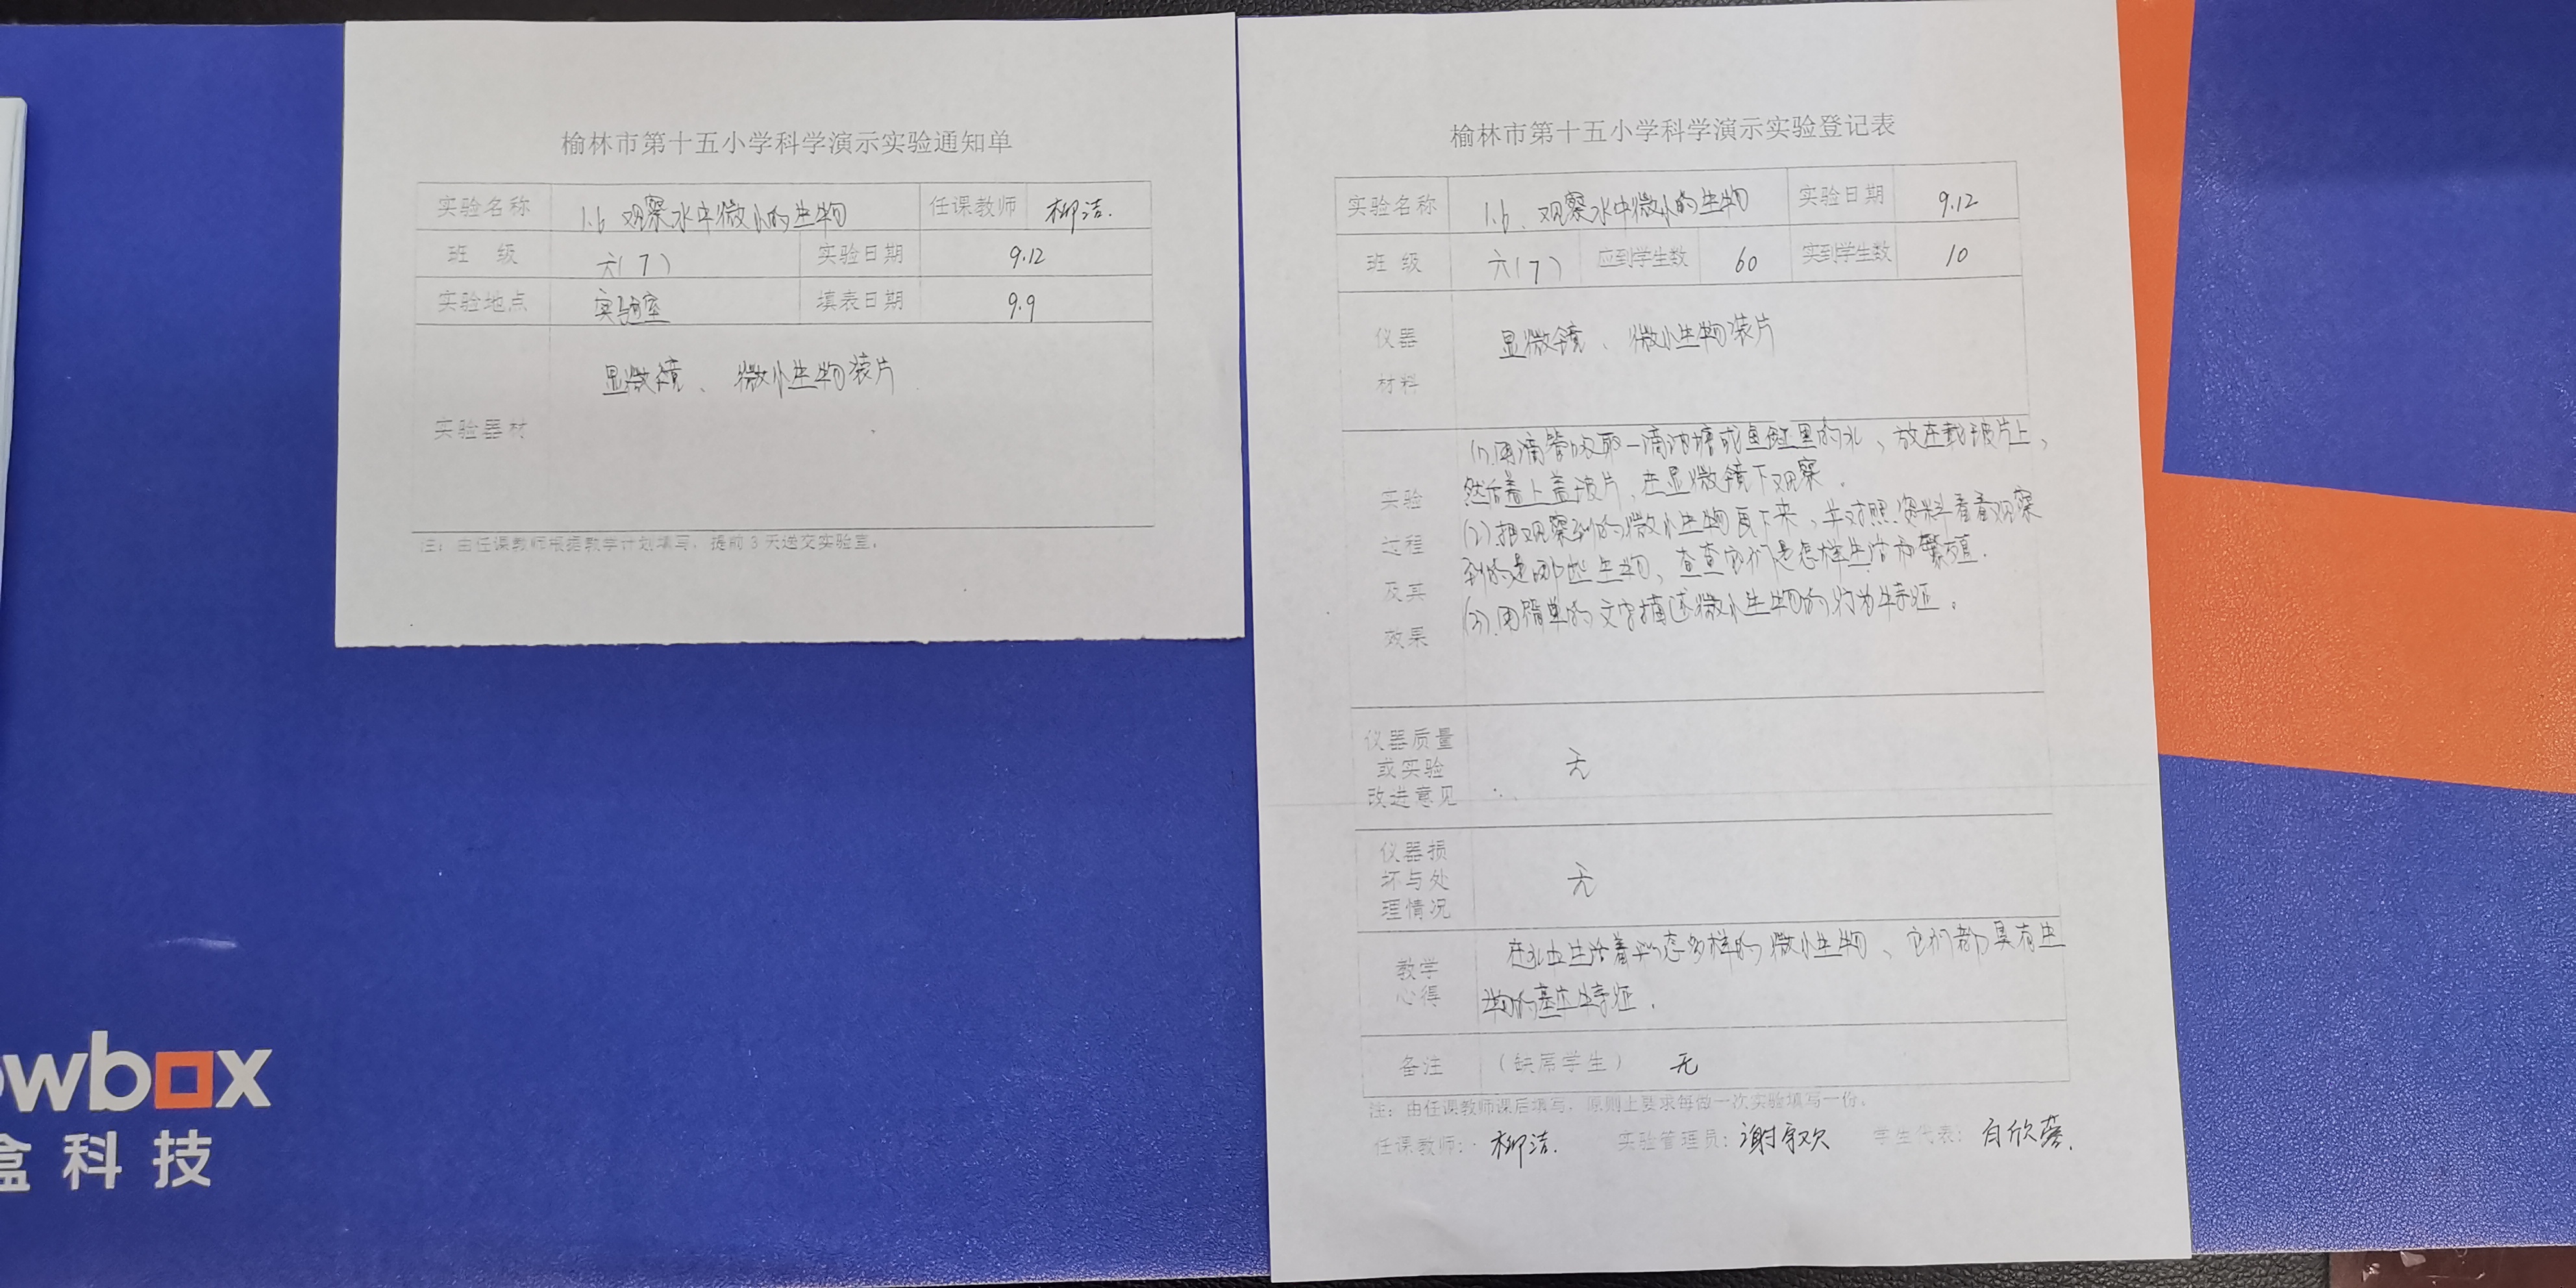 榆林市第十五小学科学演示实验通知单
实验名称 1.6 观察水中微小的生物 任课教师 柳洁.
班 级 六(7) 实验日期 9.12
实验地点 实验室 填表日期 9.9
显微镜、微小生物装片
实验器材
注：由任课教师根据教学计划填写，提前3天递交实验室。
榆林市第十五小学科学演示实验登记表
实验名称 1.6、观察水中微小的生物 实验日期 9.12
班 级 六(7) 应到学生数 60 实到学生数 10
仪器
材料
显微镜、微小生物装片
实验
过程
及其
效果
(1).用滴管吸取一滴池塘或鱼缸里的水，放在载玻片上，
然后盖上盖玻片，在显微镜下观察。
(2)把观察到的微小生物画下来，并对照资料看看观察
到的是哪些生物，查查它们是怎样生活和繁殖.
(3).用简单的文字描述微小生物的行为特征。
仪器质量
或实验
改进意见
无
仪器损
坏与处
理情况
无
教学
心得
在水中生活着形态多样的微小生物，它们都具有生
物的基本特征.
备注 （缺席学生） 无
注：由任课教师课后填写，原则上要求每做一次实验填写一份。
任课教师： 柳洁. 实验管理员： 学生代表：
owbox
盒科技